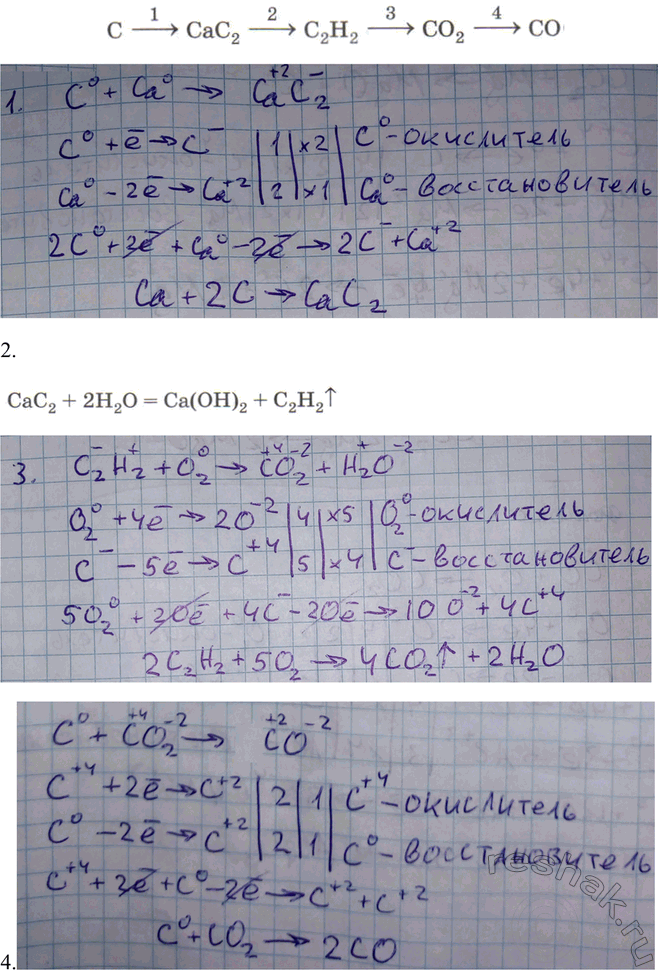 C —1→ CaC₂ —2→ C₂H₂ —3→ CO₂ —4→ CO
1. C⁰ + Ca⁰ → Ca⁺²C₂⁻
C⁰ + ē → C⁻ | 1 | ×2 | C⁰ - окислитель
Ca⁰ - 2ē → Ca⁺² | 2 | ×1 | Ca⁰ - восстановитель
2C⁰ + 2ē + Ca⁰ - 2ē → 2C⁻ + Ca⁺²
Ca + 2C → CaC₂
2.
CaC₂ + 2H₂O = Ca(OH)₂ + C₂H₂↑
3. C₂⁻H₂⁺ + O₂⁰ → C⁺⁴O₂⁻² + H₂⁺O⁻²
O₂⁰ + 4ē → 2O⁻² | 4 | ×5 | O₂⁰ - окислитель
C⁻ - 5ē → C⁺⁴ | 5 | ×4 | C⁻ - восстановитель
5O₂⁰ + 20ē + 4C⁻ - 20ē → 10O⁻² + 4C⁺⁴
2C₂H₂ + 5O₂ → 4CO₂↑ + 2H₂O
C⁰ + C⁺⁴O₂⁻² → C⁺²O⁻²
C⁺⁴ + 2ē → C⁺² | 2 | 1 | C⁺⁴ - окислитель
C⁰ - 2ē → C⁺² | 2 | 1 | C⁰ - восстановитель
C⁺⁴ + 2ē + C⁰ - 2ē → C⁺² + C⁺²
4. C⁰ + CO₂ → 2CO
reshak.ru